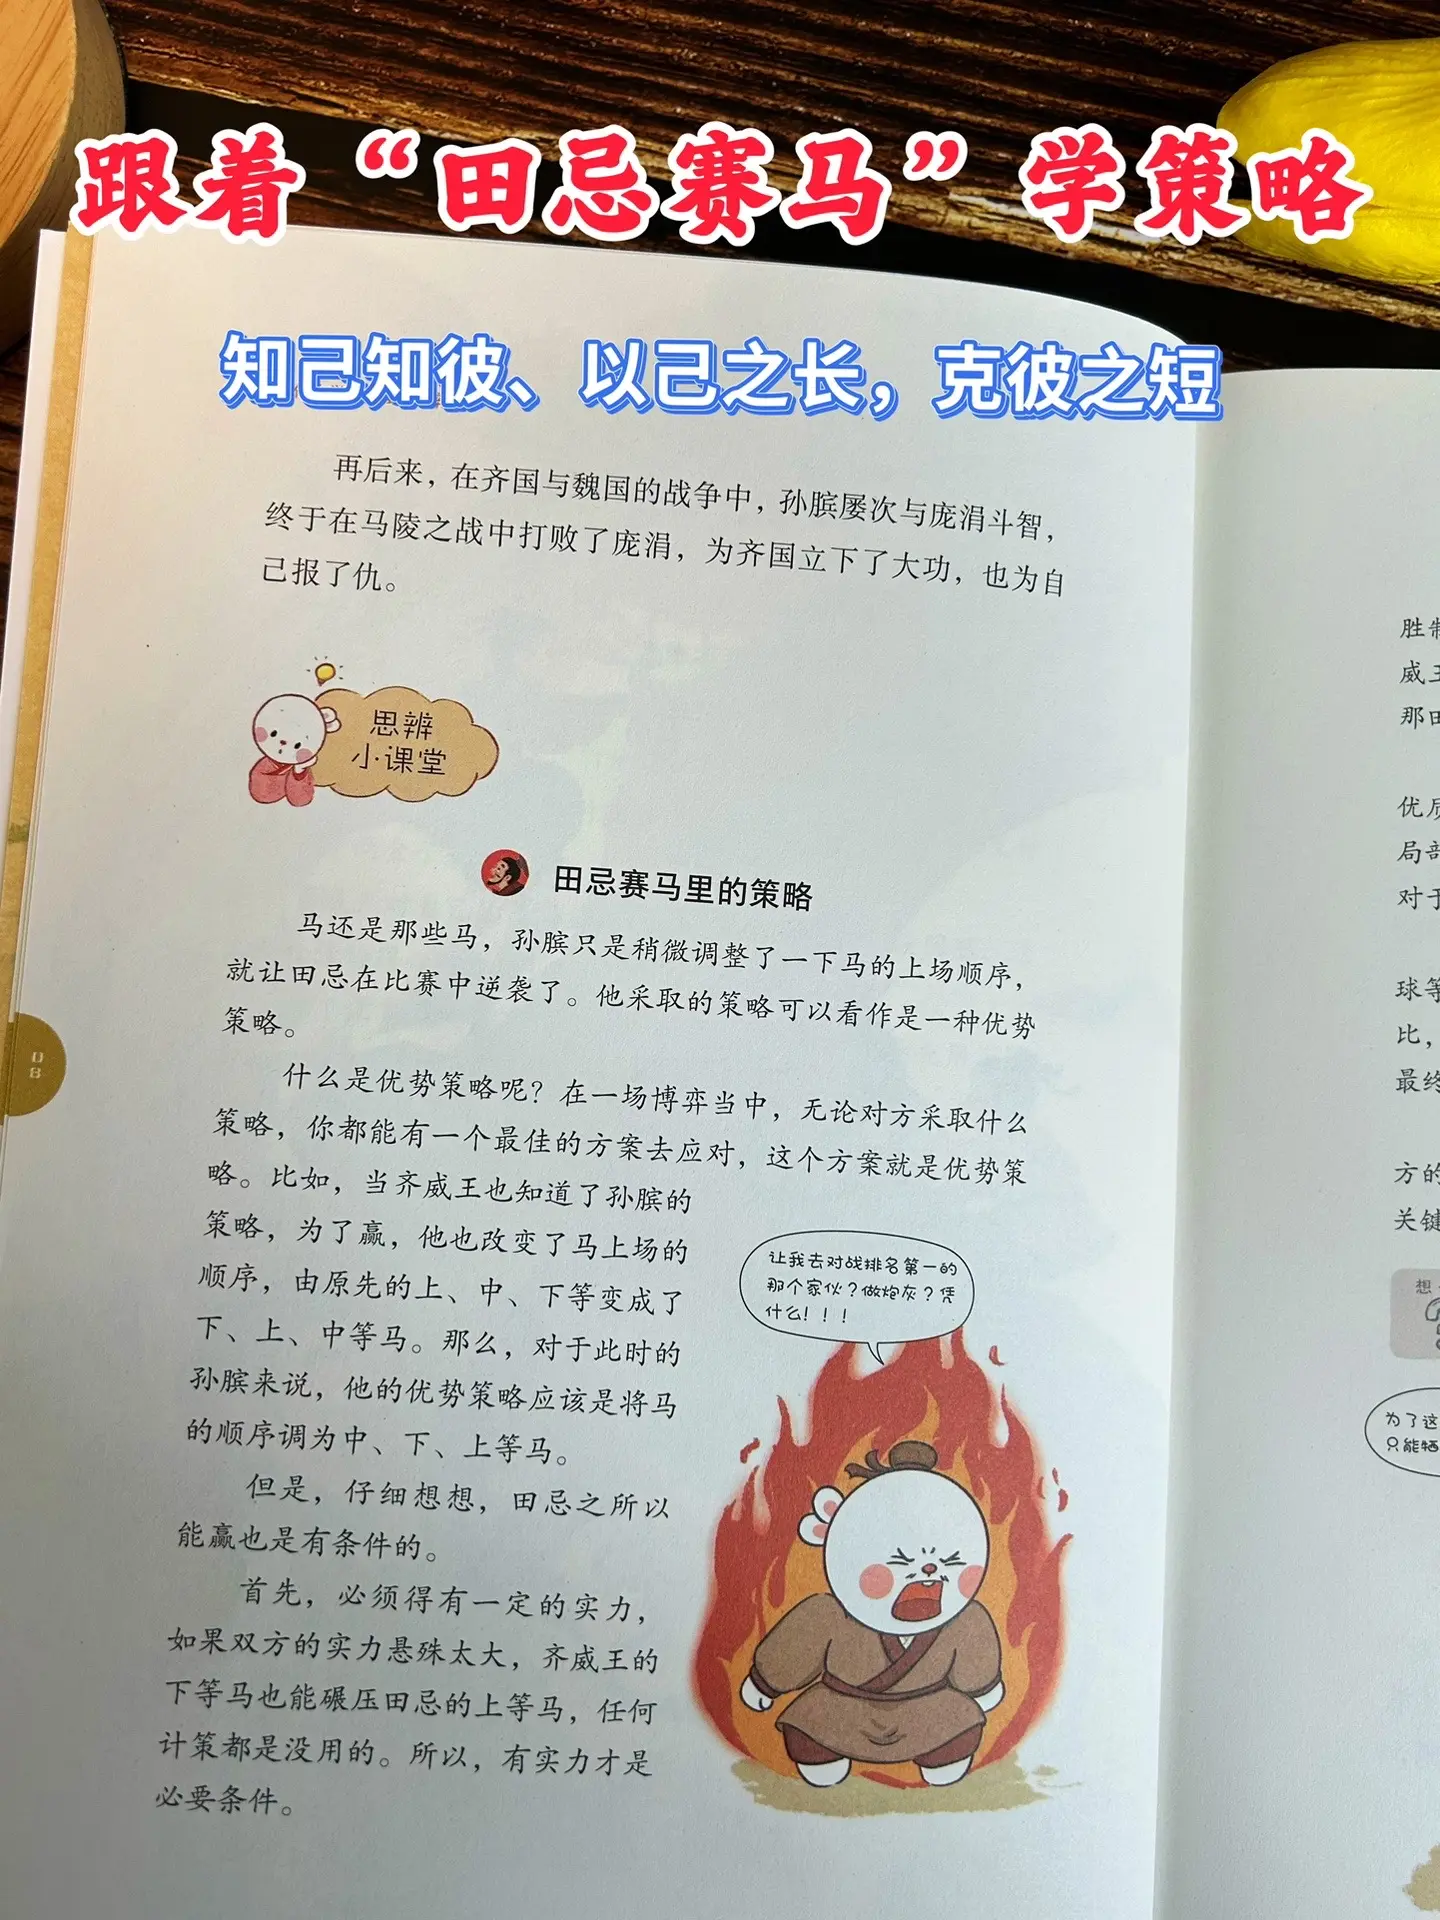 跟着“田忌赛马”学策略
知己知彼、以己之长，克彼之短
再后来，在齐国与魏国的战争中，孙膑屡次与庞涓斗智，
终于在马陵之战中打败了庞涓，为齐国立下了大功，也为自
己报了仇。
思辨
小课堂
田忌赛马里的策略
马还是那些马，孙膑只是稍微调整了一下马的上场顺序，
就让田忌在比赛中逆袭了。他采取的策略可以看作是一种优势
策略。
什么是优势策略呢？在一场博弈当中，无论对方采取什么
策略，你都能有一个最佳的方案去应对，这个方案就是优势策
略。比如，当齐威王也知道了孙膑的
策略，为了赢，他也改变了马上场的
顺序，由原先的上、中、下等变成了
下、上、中等马。那么，对于此时的
孙膑来说，他的优势策略应该是将马
的顺序调为中、下、上等马。
但是，仔细想想，田忌之所以
能赢也是有条件的。
首先，必须得有一定的实力，
如果双方的实力悬殊太大，齐威王的
下等马也能碾压田忌的上等马，任何
计策都是没用的。所以，有实力才是
必要条件。
让我去对战排名第一的
那个家伙？做炮灰？凭
什么！！！
08
胜制
威王
那田
优质
局部
对于
球等
比，
最终
方的
关键
想
为了这
只能牺